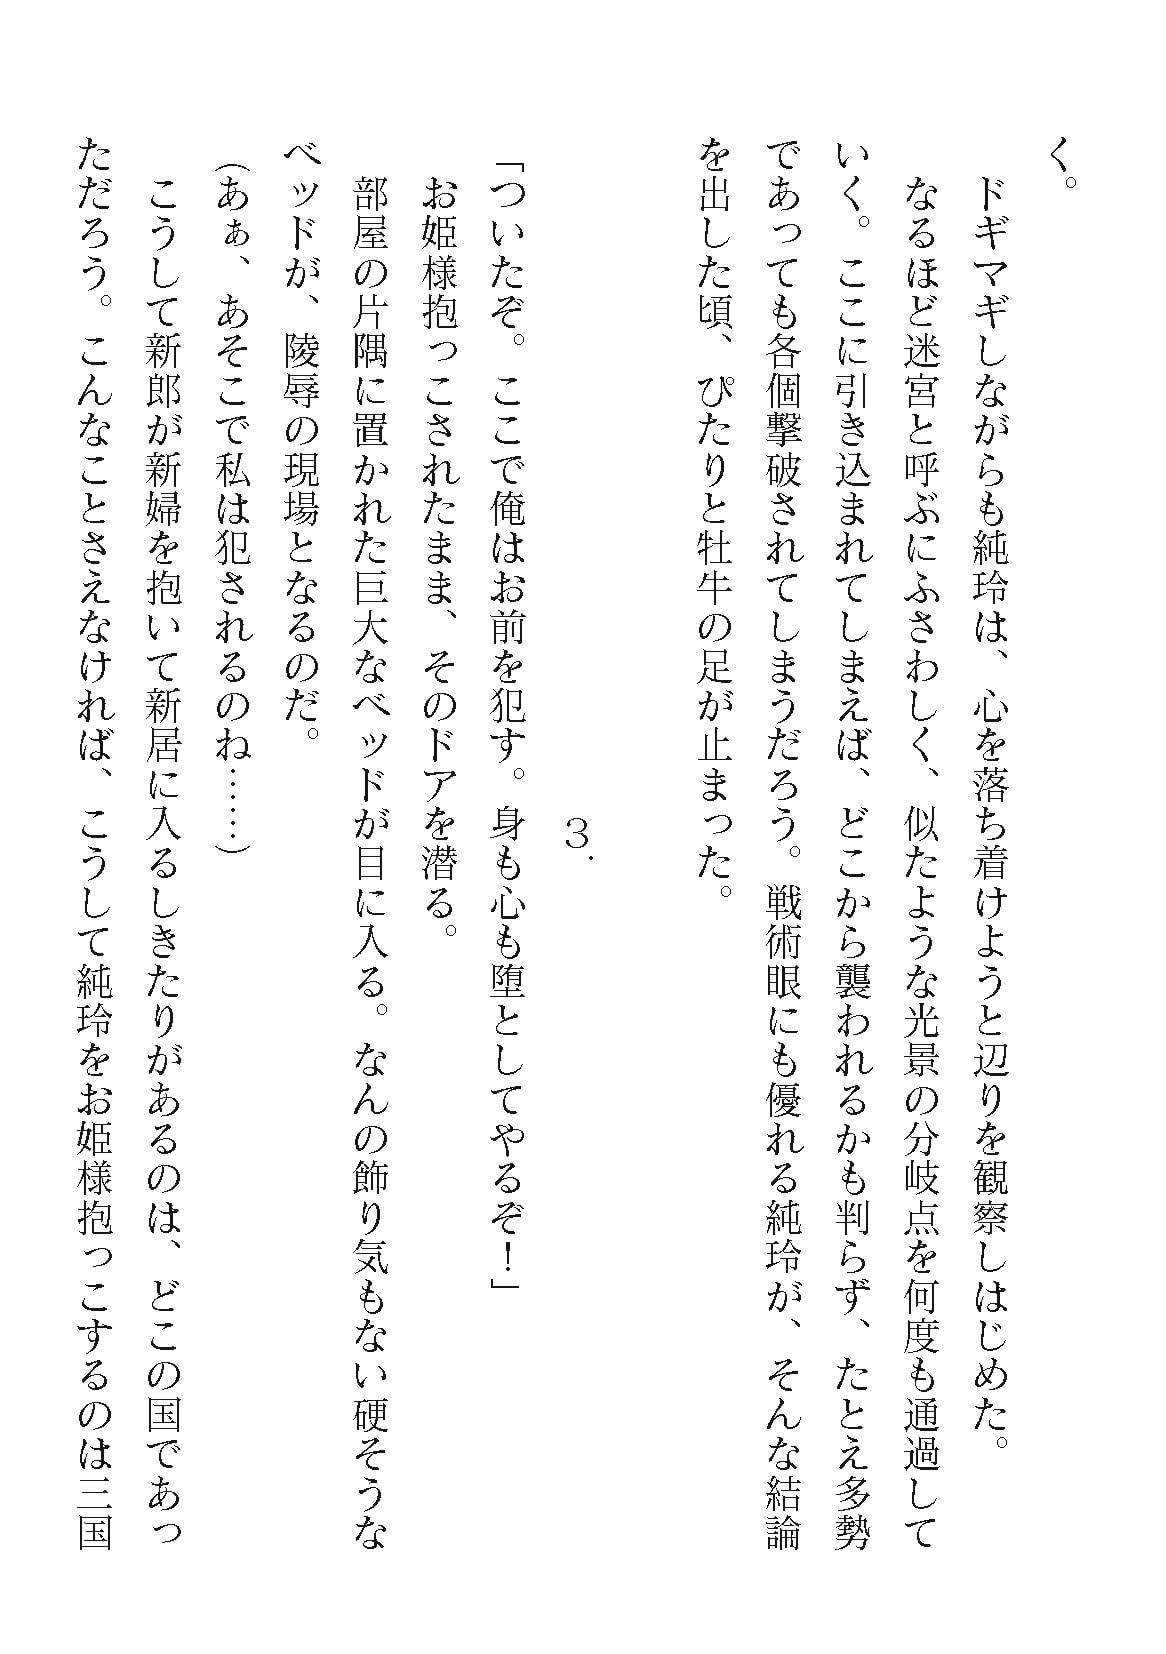 く。
　ドギマギしながらも純玲は、心を落ち着けようと辺りを観察しはじめた。
　なるほど迷宮と呼ぶにふさわしく、似たような光景の分岐点を何度も通過して
いく。ここに引き込まれてしまえば、どこから襲われるかも判らず、たとえ多勢
であっても各個撃破されてしまうだろう。戦術眼にも優れる純玲が、そんな結論
を出した頃、ぴたりと牡牛の足が止まった。
3.
「ついたぞ。ここで俺はお前を犯す。身も心も堕としてやるぞ！」
　お姫様抱っこされたまま、そのドアを潜る。
　部屋の片隅に置かれた巨大なベッドが目に入る。なんの飾り気もない硬そうな
ベッドが、陵辱の現場となるのだ。
（あぁ、あそこで私は犯されるのね……）
　こうして新郎が新婦を抱いて新居に入るしきたりがあるのは、どこの国であっ
ただろう。こんなことさえなければ、こうして純玲をお姫様抱っこするのは三国